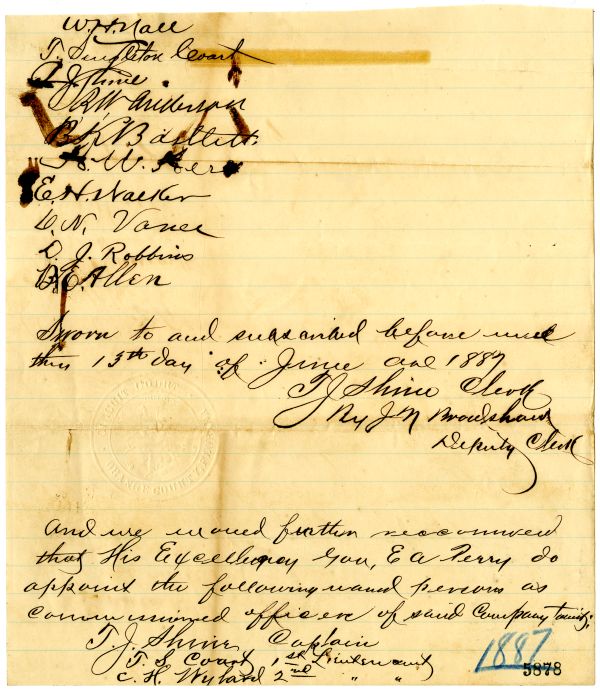 W. H. Nall
T. Singleton Coart
T. J. Shine
R W Anderson
B. K. Bartlett
W.
E. H. Walker
L. N. Vance
D. J. Robbins
E. Allen
Sworn to and subscribed before me
this 13th day of June A D 1887
T J Shine Clerk
By J N Bradshaw
Deputy Clerk
ORANGE COUNTY
And we would further reccomend
that His Excellency Gov, E A Perry do
appoint the following named persons as
commissioned officers of said Company
T. J. Shine Captain
T. S. Coart 1st Lieutenant
C. H. Wyland 2nd " "
1887
5878